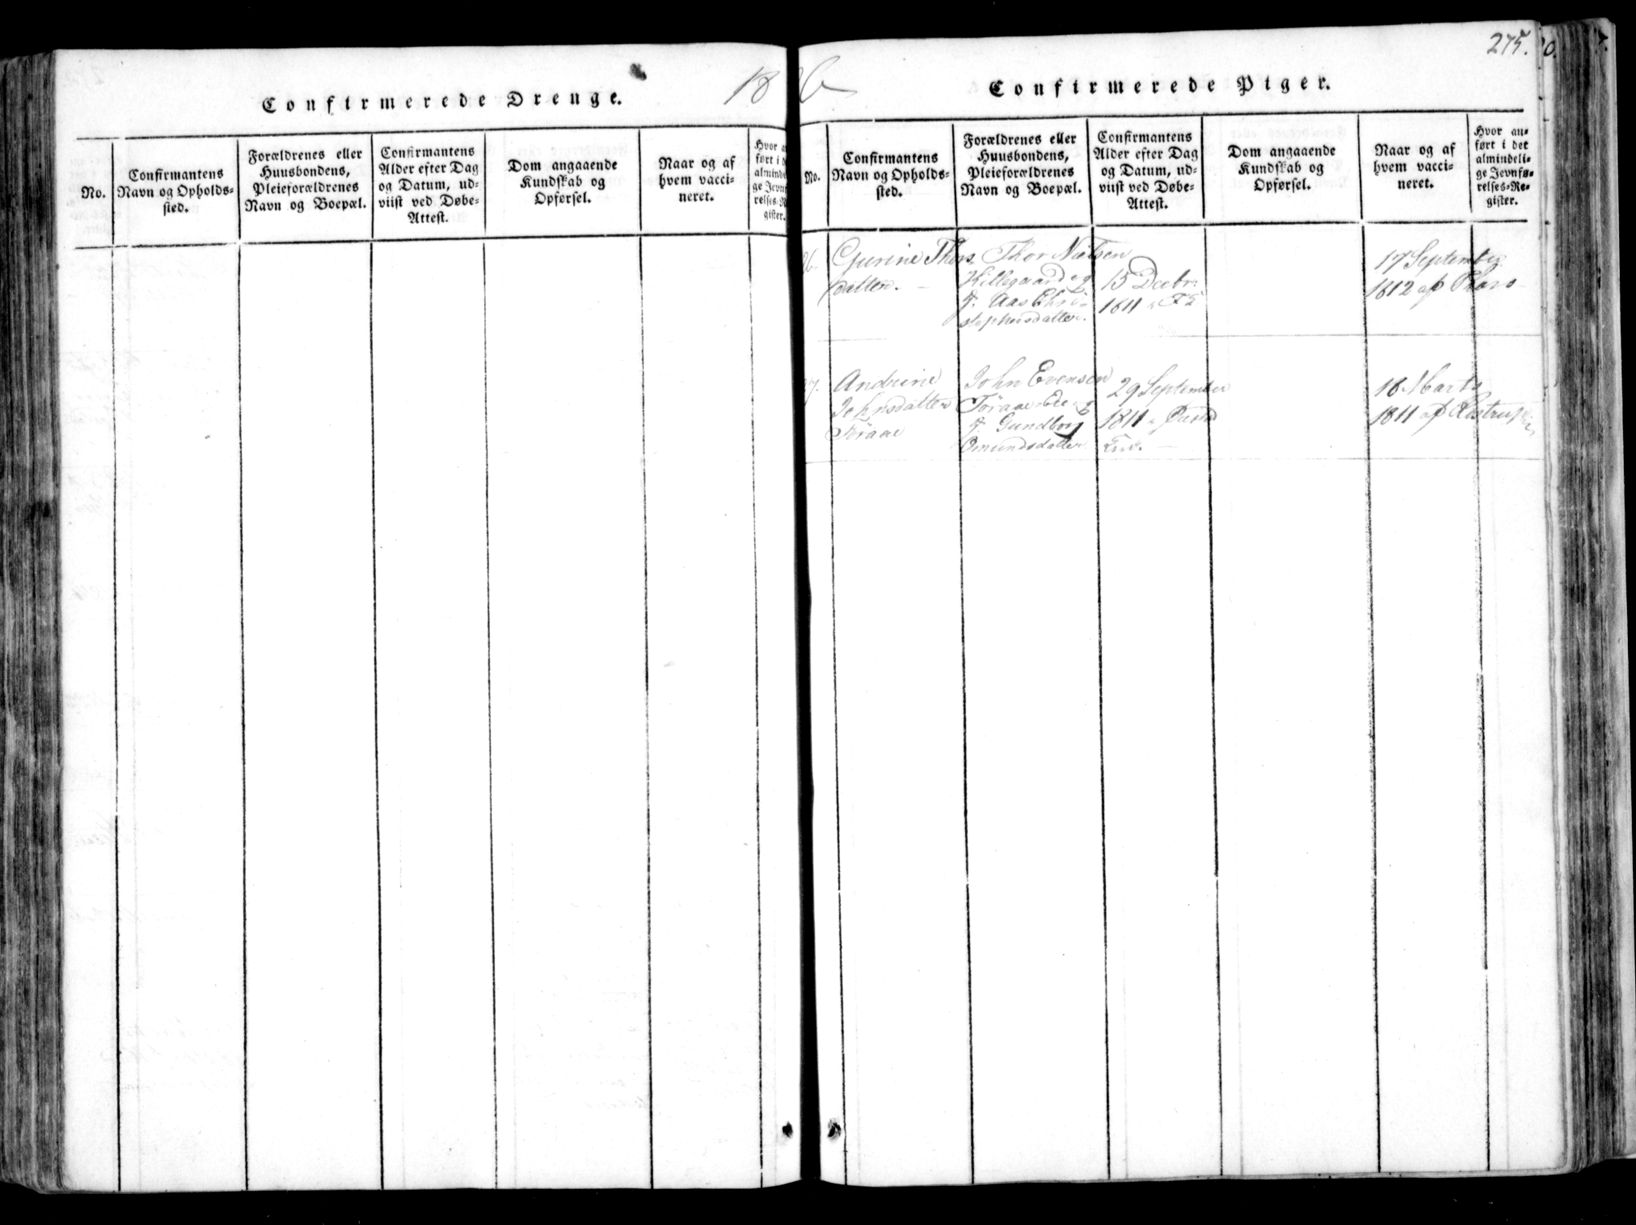 Confirmerede Drenge.
18 26
No.
Confirmantens
Navn og Opholds-
sted.
Forældrenes eller
Huusbondens,
Pleieforældrenes
Navn og Boepæl.
Confirmantens
Alder efter Dag
og Datum, ud-
viist ved Døbe-
Attest.
Dom angaaende
Kundskab og
Opførsel.
Naar og af
hvem vacci-
neret.
Hvor
ført i
ge
gister.
275.
Confirmerede Piger.
No.
Confirmantens
Navn og Opholds-
sted.
Forældrenes eller
Huusbondens,
Pleieforældrenes
Navn og Boepæl.
Confirmantens
Alder efter Dag
og Datum, ud-
viist ved Døbe-
Attest.
Dom angaaende
Kundskab og
Opførsel.
Naar og af
hvem vacci-
neret.
Hvor an-
ført i det
almindeli-
ge Jevnfø-
relses-Re-
gister.
Gurine Thors
datter.
Thor Nielsen
Killegaard og
H. Aas Chri-
stophersdatter.
15 Decbr
1811
17 September
1812 af
Andrine
Johnsdatter
Toraae
John Evensen
Toraae
H. Gundborg
Omundsdatter
29 September
1811
18 Marts
1811 af